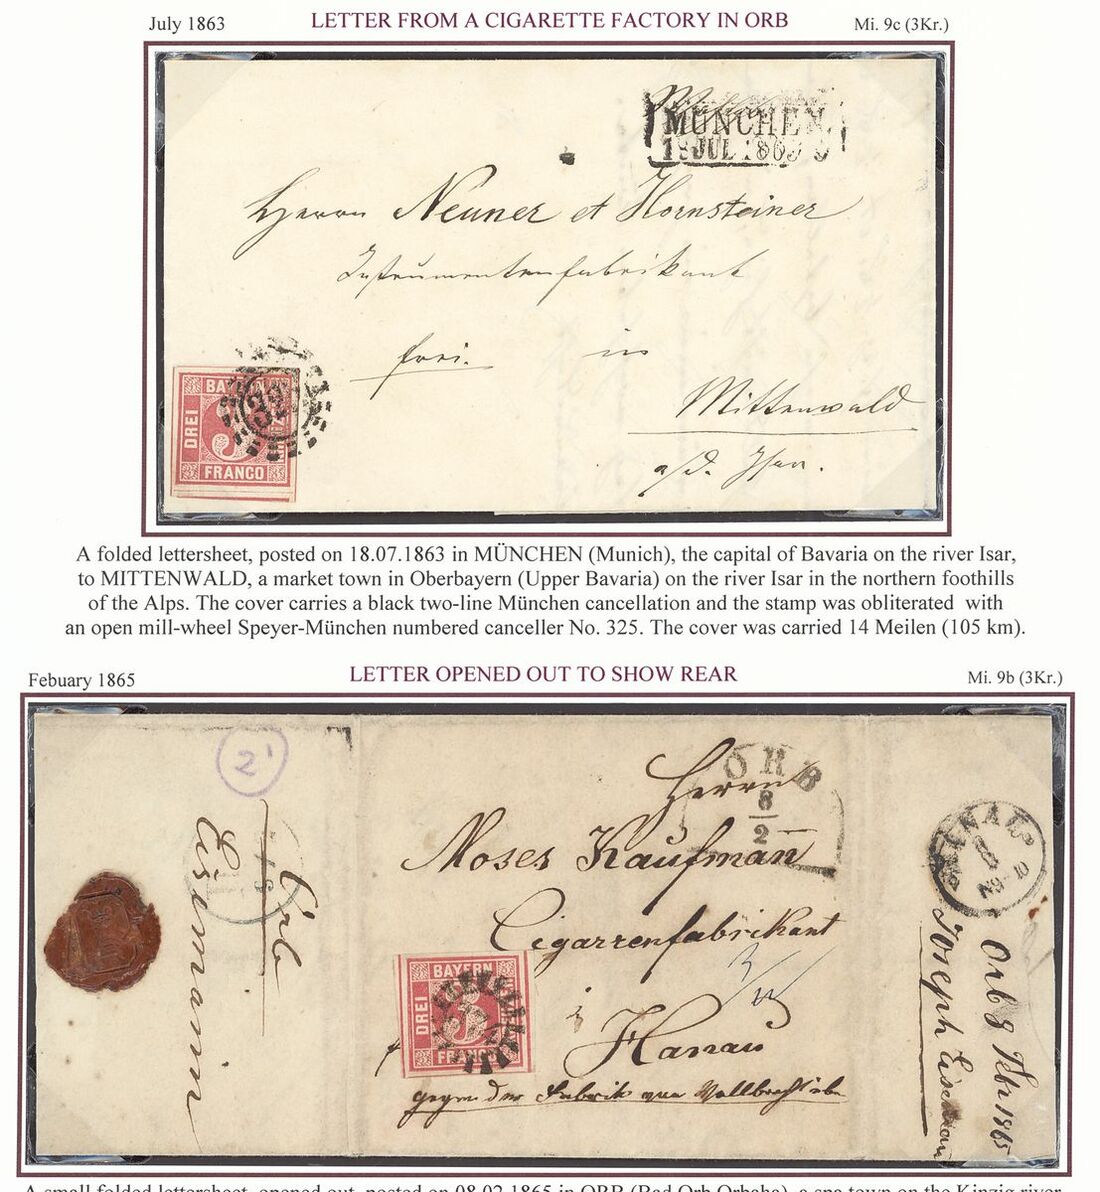 July 1863
LETTER FROM A CIGARETTE FACTORY IN ORB
Mi. 9c (3Kr.)
MÜNCHEN
18 JUL 1863
Herrn Neuner et Hornsteiner
Instrumentenfabrikant
frei. in
Mittenwald
a/d. Isar.
BAYERN
DREI
FRANCO
A folded lettersheet, posted on 18.07.1863 in MÜNCHEN (Munich), the capital of Bavaria on the river Isar,
to MITTENWALD, a market town in Oberbayern (Upper Bavaria) on the river Isar in the northern foothills
of the Alps. The cover carries a black two-line München cancellation and the stamp was obliterated with
an open mill-wheel Speyer-München numbered canceller No. 325. The cover was carried 14 Meilen (105 km).
Febuary 1865
LETTER OPENED OUT TO SHOW REAR
Mi. 9b (3Kr.)
2
ORB
8
2
Herrn
Moses Kaufmann
Cigarrenfabrikant
Hanau
gegen der Fabrik
BAYERN
DREI
FRANCO
Orb
Eisemann
HANAU
Orb 8 Febr 1865
Joseph Eisemann
A small folded lettersheet, opened out, posted on 08.02.1865 in ORB (Bad Orb Orbaha), a spa town on the Kinzig river